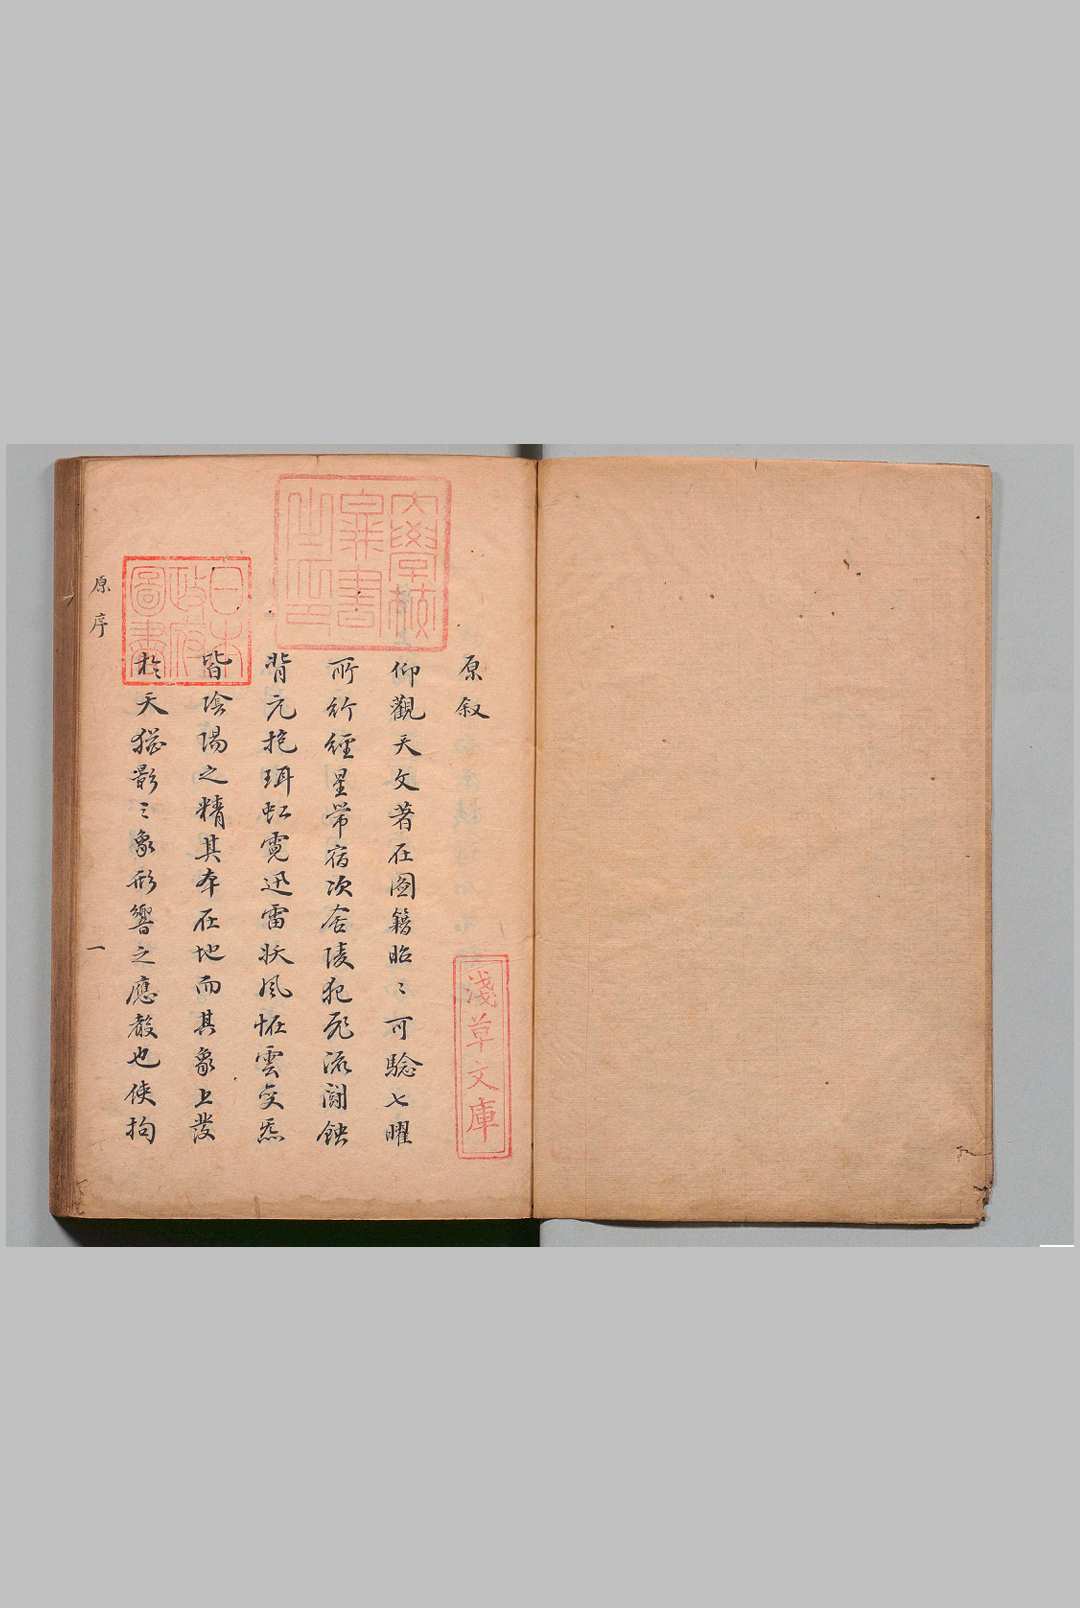 大學校圖書之印
日本政府圖書
原叙
仰觀天文著在圖籍昭〻可騐七曜
所行經星常宿次舍陵犯飛流鬪蝕
背元抱珥虹霓迅雷妖風恠雲變炁
皆陰陽之精其本在地而其象上發
於天猶影〻象形響之應聲也使拘
原序
一
淺草文庫